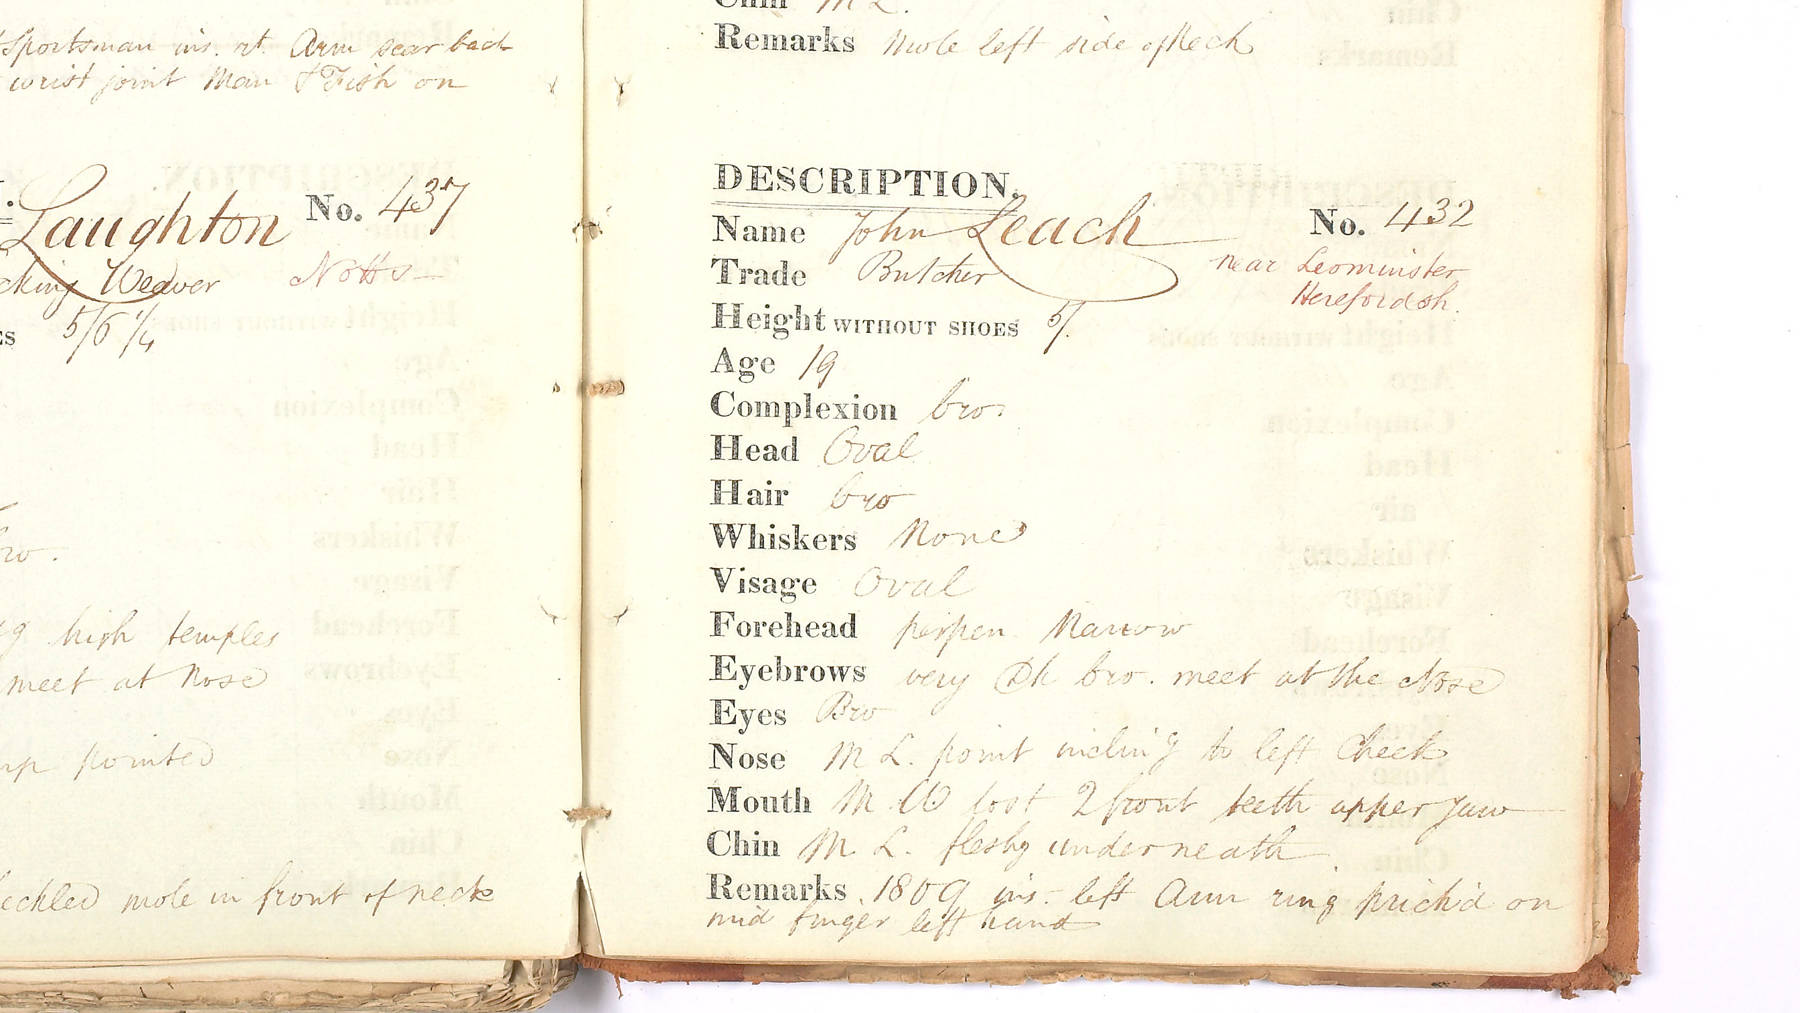 Sportsman ins. rt. Arm scar back
wrist joint Man & Fish on
Laughton No. 437
cking Weaver Notts
5/6 1/4
bro.
high temples
meet at Nose
pointed
eckled mole in front of neck
Chin M L.
Remarks Mole left side of Neck
DESCRIPTION.
Name John Leach No. 432
Trade Butcher near Leominster
Herefordsh.
Height WITHOUT SHOES 5/.
Age 19
Complexion bro.
Head Oval
Hair bro
Whiskers None
Visage Oval
Forehead perpen. Narrow
Eyebrows very Dk bro. meet at the Nose
Eyes Bro
Nose M L. point inclin'g to left Cheek
Mouth M. W lost 2 front teeth upper Jaw
Chin M. L. fleshy underneath.
Remarks. 1809 ins. left Arm ring prick'd on
mid finger left hand